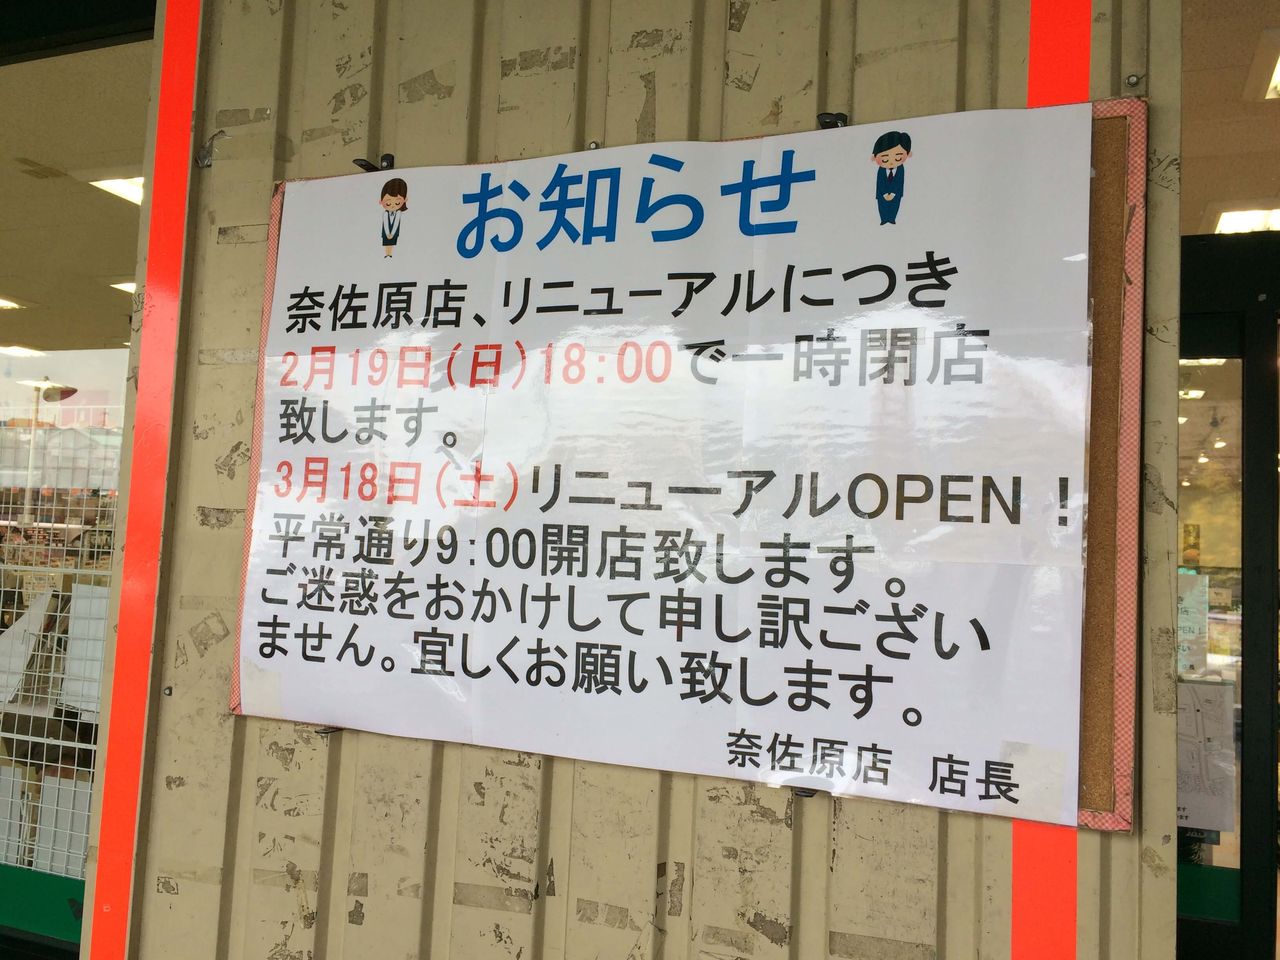 お知らせ
奈佐原店、リニューアルにつき
2月19日(日)18:00で一時閉店
致します。
3月18日(土)リニューアルOPEN!
平常通り9:00開店致します。
ご迷惑をおかけして申し訳ござい
ません。宜しくお願い致します。
奈佐原店 店長